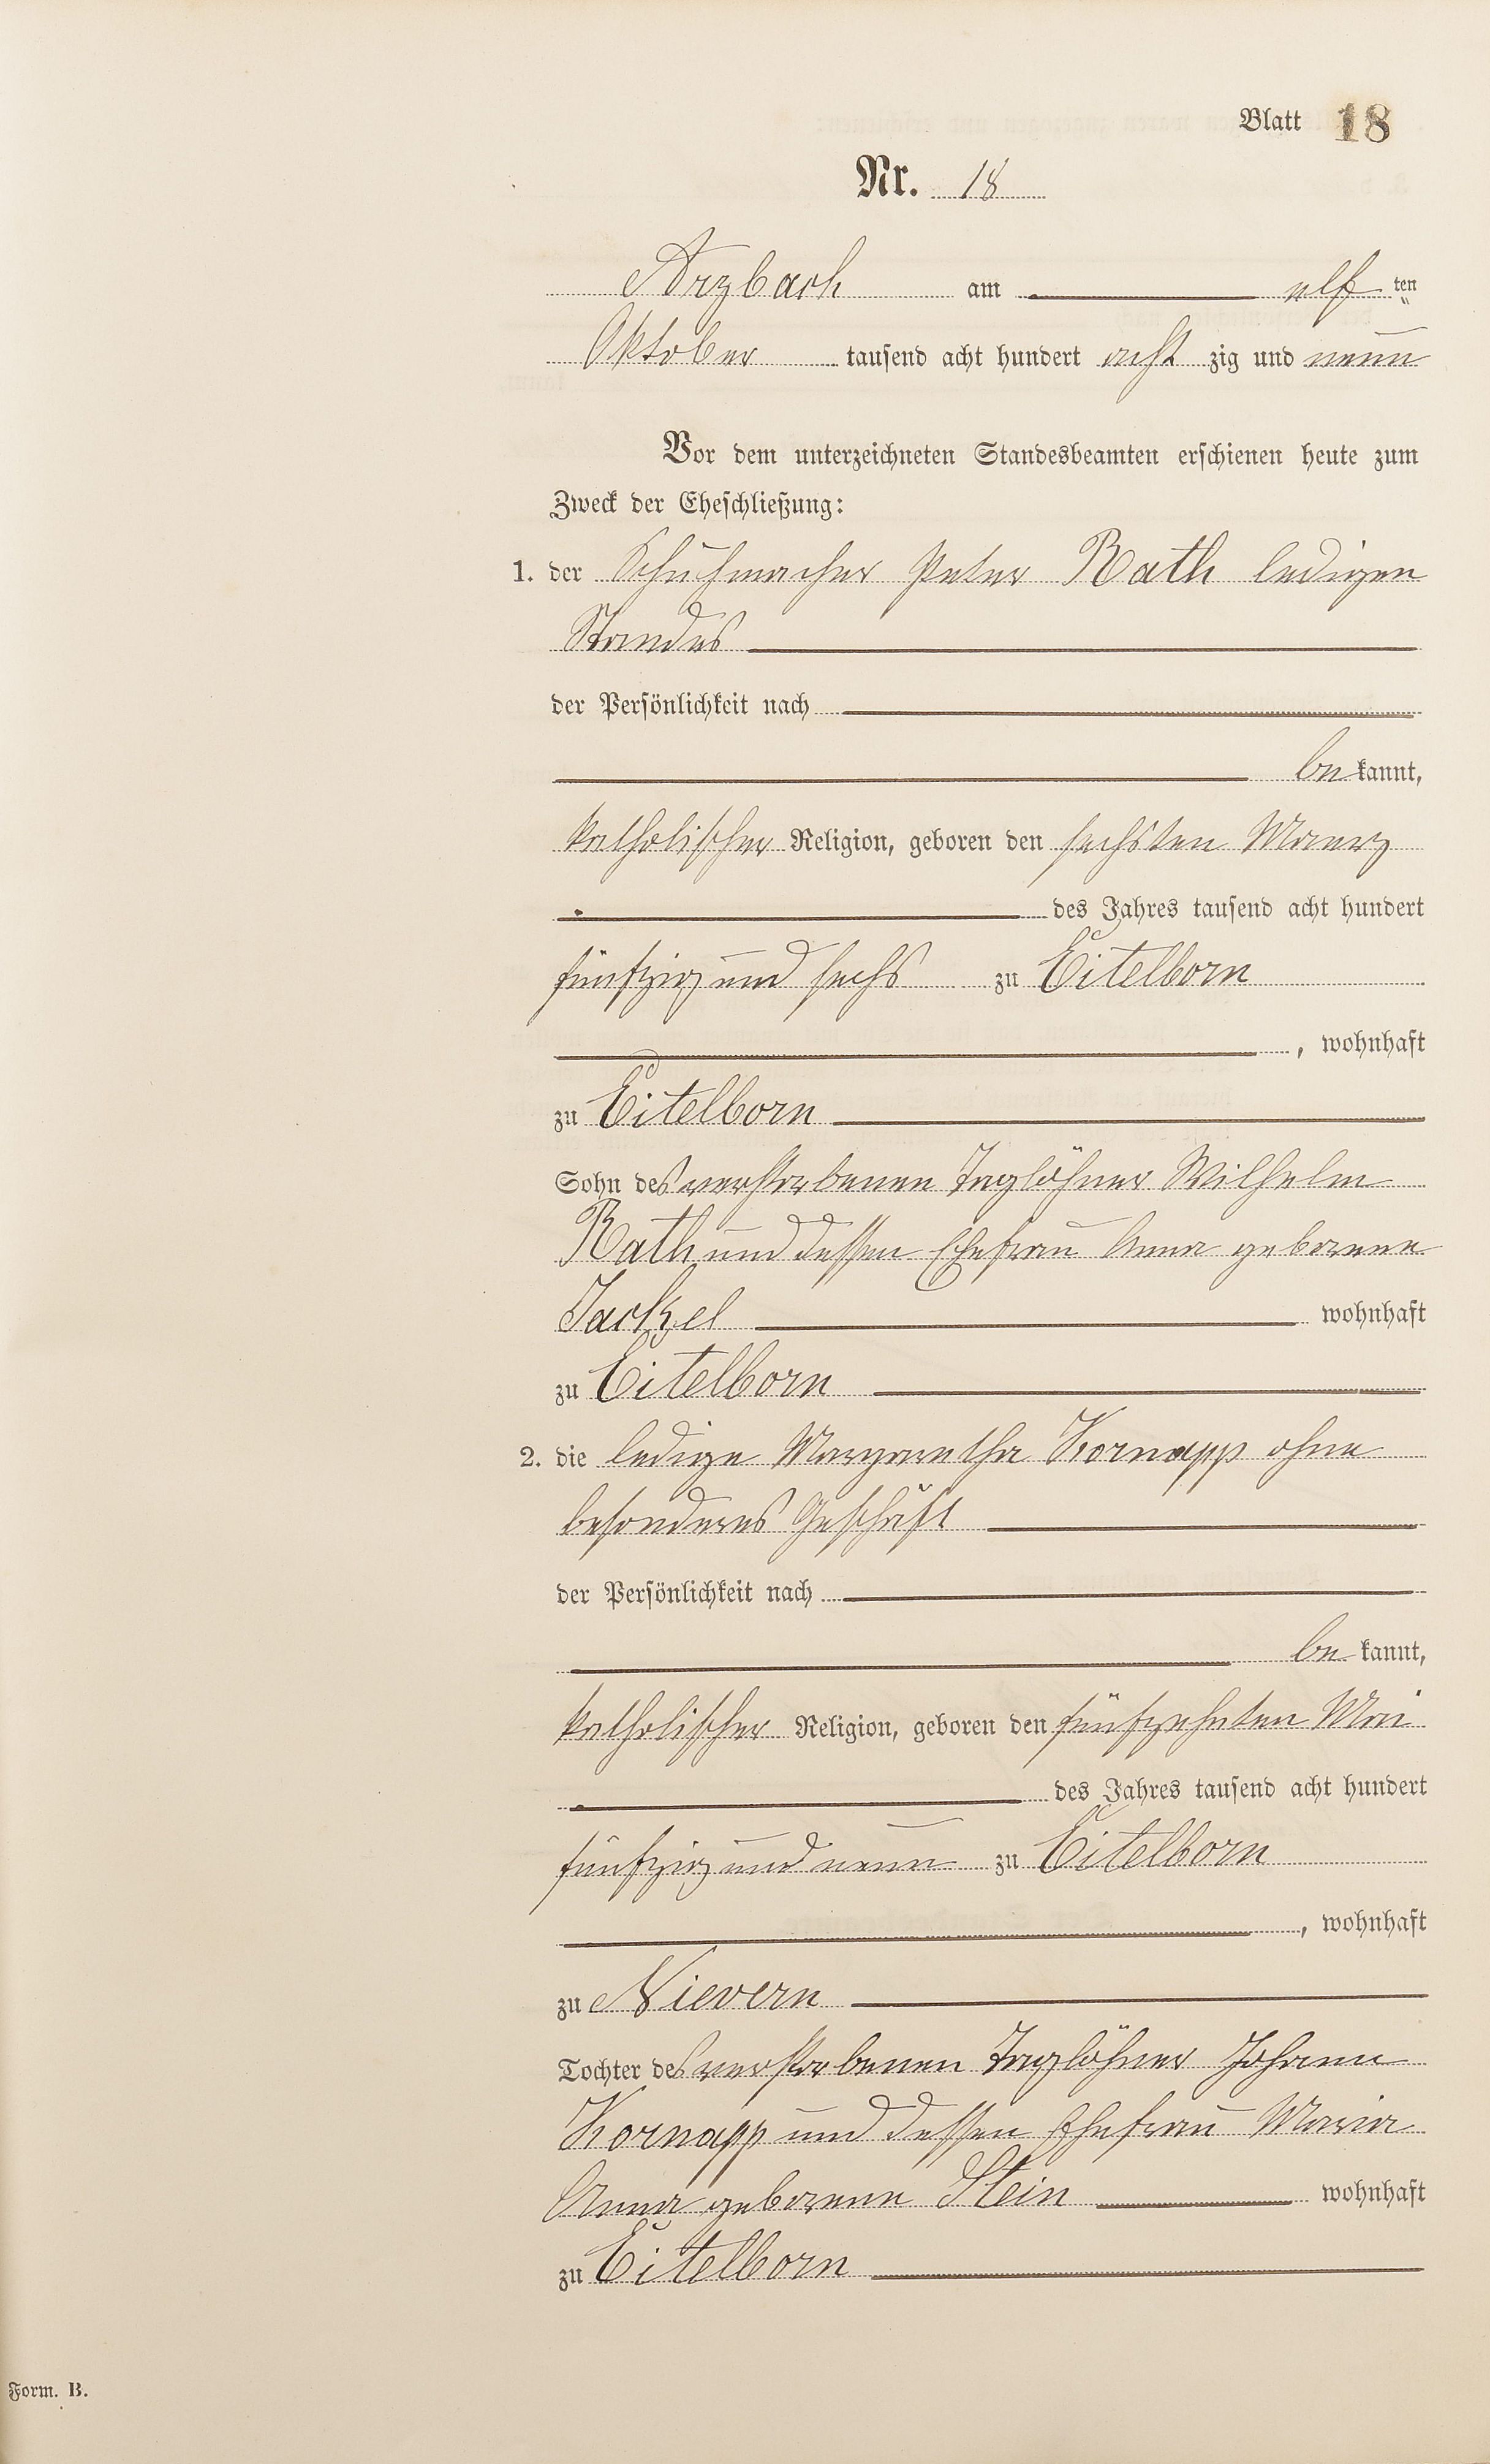 Blatt 18
Nr. 18
Arzbach am elf ten
Oktober tausend acht hundert acht zig und neun
Vor dem unterzeichneten Standesbeamten erschienen heute zum
Zweck der Eheschließung:
1. der Schuhmacher Peter Rath ledigen
Standes
der Persönlichkeit nach
be kannt,
katholischer Religion, geboren den sechsten Maerz
des Jahres tausend acht hundert
fünfzig und sechs zu Eitelborn
, wohnhaft
zu Eitelborn
Sohn des verstorbenen Taglöhner Wilhelm
Rath und dessen Ehefrau Anna geborene
Jackel wohnhaft
zu Eitelborn
2. die ledige Margaretha Kornapp ohne
besonderes Geschäft
der Persönlichkeit nach
be kannt,
katholischer Religion, geboren den fünfzehnten Mai
des Jahres tausend acht hundert
fünfzig und neun zu Eitelborn
, wohnhaft
zu Nievern
Tochter des verstorbenen Taglöhner Johann
Kornapp und dessen Ehefrau Maria
Anna geborene Stein wohnhaft
zu Eitelborn
Form. B.